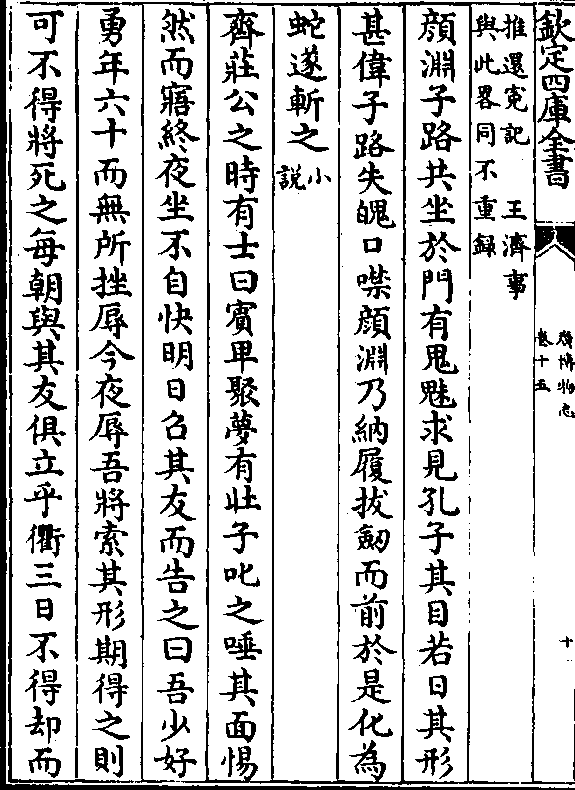 欽定四庫全書
廣博物志
卷十五
十
推還寃記　王濟事
與此畧同不重録
顔淵子路共坐於門有鬼魅求見孔子其目若日其形
甚偉子路失魄口噤顔淵乃納履拔劒而前於是化為
蛇遂斬之小
説
齊莊公之時有士曰賓卑聚夢有壯子叱之唾其面惕
然而寤終夜坐不自快明日召其友而告之曰吾少好
勇年六十而無所挫辱今夜辱吾將索其形期得之則
可不得將死之每朝與其友俱立乎衢三日不得却而